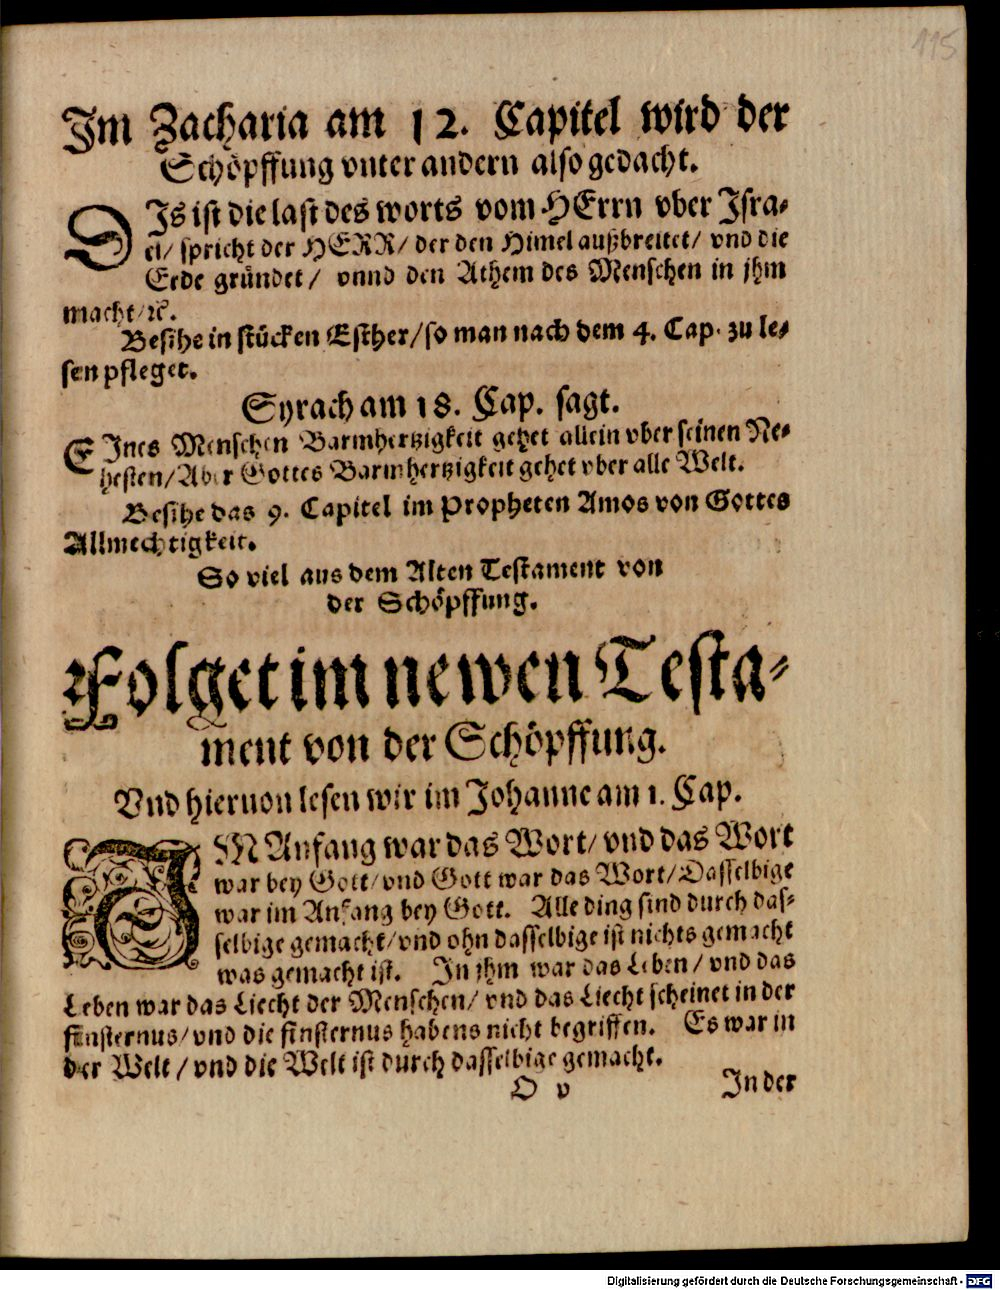 115
Im Zacharia am 12. Capitel wird der
Schöpffung vnter andern also gedacht.
DIs ist die last des worts vom HErrn vber Isra-
el/ spricht der HERR/ der den Himel außbreitet/ vnd die
Erde gründet/ vnnd den Athem des Menschen in jhm
macht/ ꝛc.
Besihe in stücken Esther/ so man nach dem 4. Cap. zu le-
sen pfleget.
Syrach am 18. Cap. sagt.
EInes Menschen Barmhertzigkeit gehet allein vber seinen Ne-
hesten/ Aber Gottes Barmhertzigkeit gehet vber alle Welt.
Besihe das 9. Capitel im Propheten Amos von Gottes
Allmechtigkeit.
So viel aus dem Alten Testament von
der Schöpffung.
Folget im newen Testa-
ment von der Schöpffung.
Vnd hieruon lesen wir im Johanne am 1. Cap.
IM Anfang war das Wort/ vnd das Wort
war bey Gott/ vnd Gott war das Wort/ Dasselbige
war im Anfang bey Gott. Alle ding sind durch das-
selbige gemacht/ vnd ohn dasselbige ist nichts gemacht
was gemacht ist. In jhm war das Leben/ vnd das
Leben war das Liecht der Menschen/ vnd das Liecht scheinet in der
finsternus/ vnd die finsternus habens nicht begriffen. Es war in
der Welt/ vnd die Welt ist durch dasselbige gemacht.
O v In der
Digitalisierung gefördert durch die Deutsche Forschungsgemeinschaft - DFG